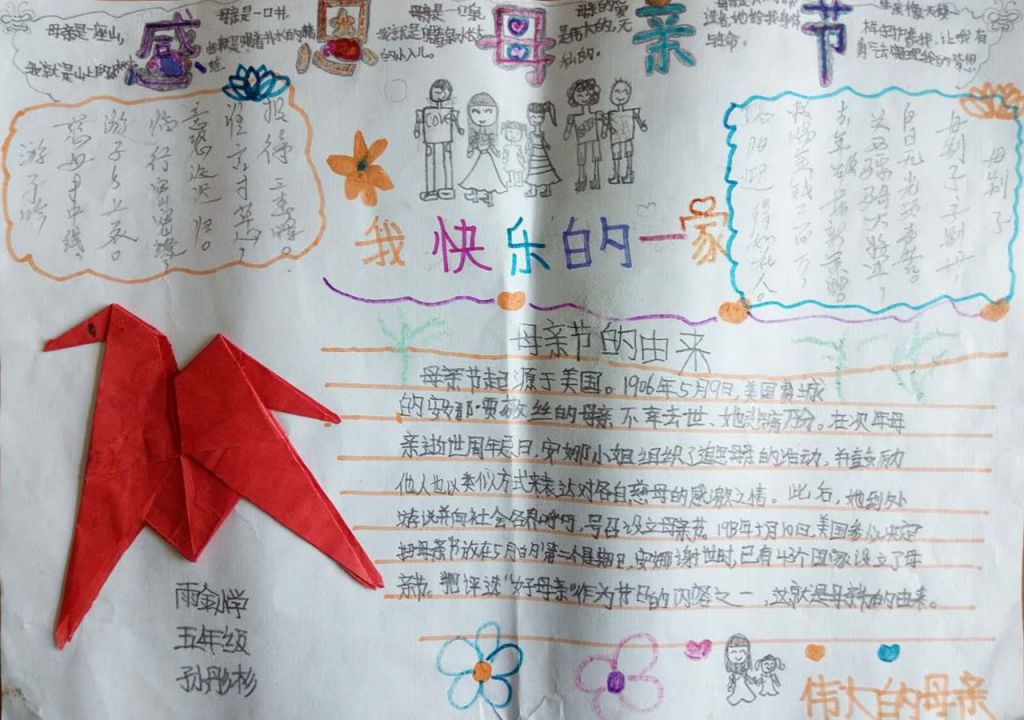 感恩母亲节
母亲是一座山,
我就是山上的
母亲是一口井,
我快乐的一家
游子吟
慈母手中线,
游子身上衣。
临行密密缝,
意恐迟迟归。
谁言寸草心,
报得三春晖。
母别子
母别子,子别母,
白日无光哭声苦。
关西骠骑大将军,
去年破虏新策勋。
敕赐金钱二百万,
洛阳迎得如花人。
母亲节的由来
母亲节起源于美国。1906年5月9日,美国费城
的安娜·贾薇丝的母亲不幸去世、她悲痛万分。在次年母
亲逝世周年忌日,安娜小姐组织了追思母亲的活动,并鼓励
他人也以类似方式来表达对各自慈母的感激之情。此后,她到处
游说并向社会各界呼吁,号召设立母亲节。1913年5月10日,美国参众决定
把母亲节放在5月的第二个星期日,安娜谢世时,已有43个国家设立了母
亲节。把评选"好母亲"作为节日的内容之一,这就是母亲节的由来。
雨金小学
五年级
孙彤杉
伟大的母亲